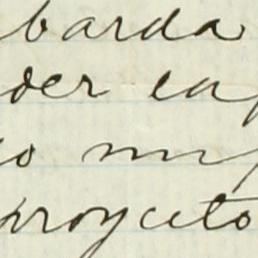 barda
der ca
o mu
proycito